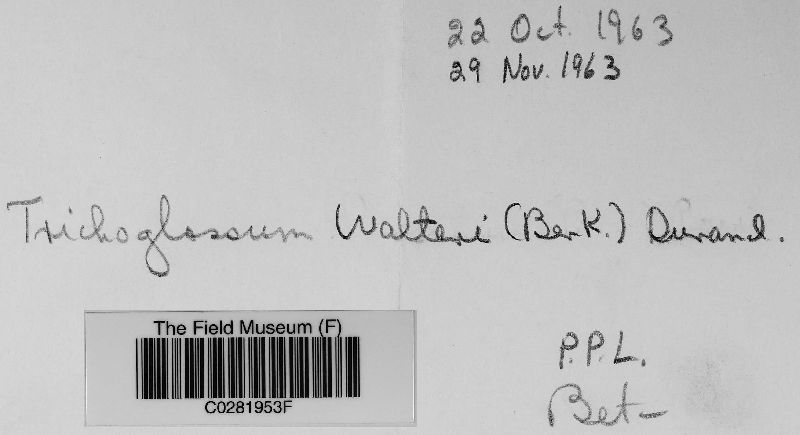 22 Oct. 1963
29 Nov. 1963
Trichoglossum Walteri (Berk.) Durand.
The Field Museum (F)
C0281953F
P.P.L.
Bet-